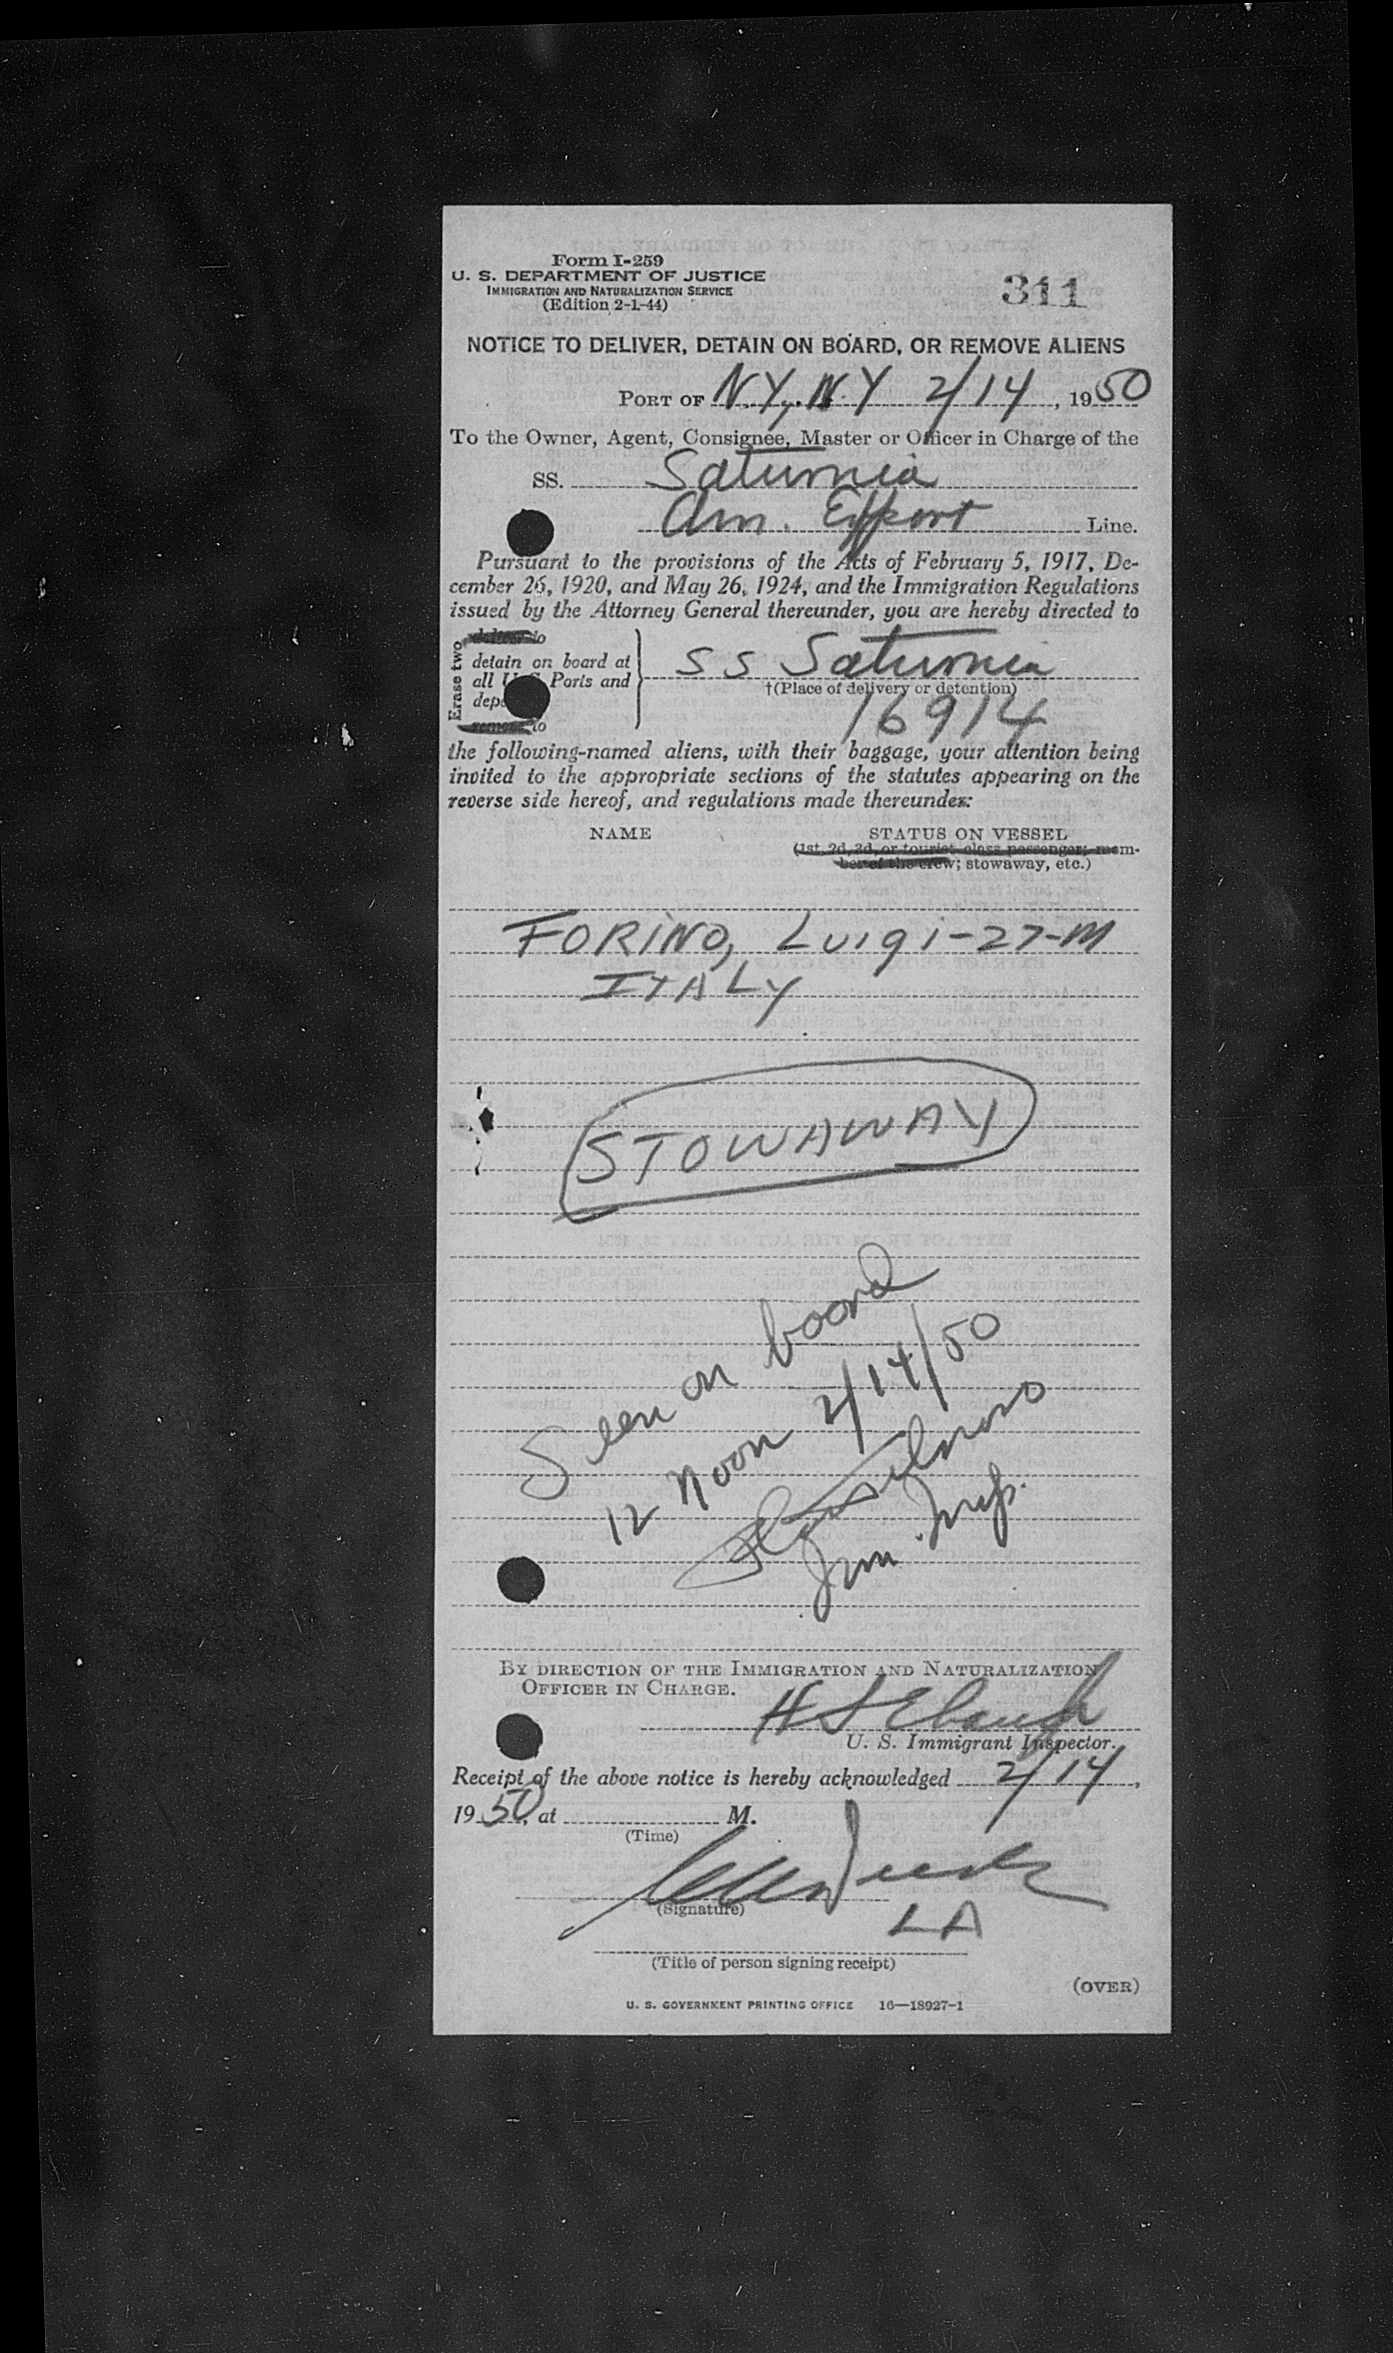 Form I-259
U. S. DEPARTMENT OF JUSTICE
IMMIGRATION AND NATURALIZATION SERVICE
(Edition 2-1-44)
311
NOTICE TO DELIVER, DETAIN ON BOARD, OR REMOVE ALIENS
PORT OF N.Y., N.Y 2/14, 1950
To the Owner, Agent, Consignee, Master or Officer in Charge of the
SS. Saturnia
Am. Export Line.
Pursuant to the provisions of the Acts of February 5, 1917, De-
cember 26, 1920, and May 26, 1924, and the Immigration Regulations
issued by the Attorney General thereunder, you are hereby directed to
Erase two
deliver to
detain on board at
all U. S. Ports and
remove to
SS Saturnia
†(Place of delivery or detention)
16914
the following-named aliens, with their baggage, your attention being
invited to the appropriate sections of the statutes appearing on the
reverse side hereof, and regulations made thereunder:
NAME STATUS ON VESSEL
(1st, 2d, 3d, or tourist class passenger; mem-
ber of the crew; stowaway, etc.)
FORINO, Luigi-27-M
ITALY
STOWAWAY
Seen on board
12 Noon 2/14/50
Imm. Insp.
BY DIRECTION OF THE IMMIGRATION AND NATURALIZATION
OFFICER IN CHARGE.
U. S. Immigrant Inspector.
Receipt of the above notice is hereby acknowledged 2/14,
1950, at M.
(Time)
(Signature)
LA
(Title of person signing receipt)
(OVER)
U. S. GOVERNMENT PRINTING OFFICE 16—18927-1